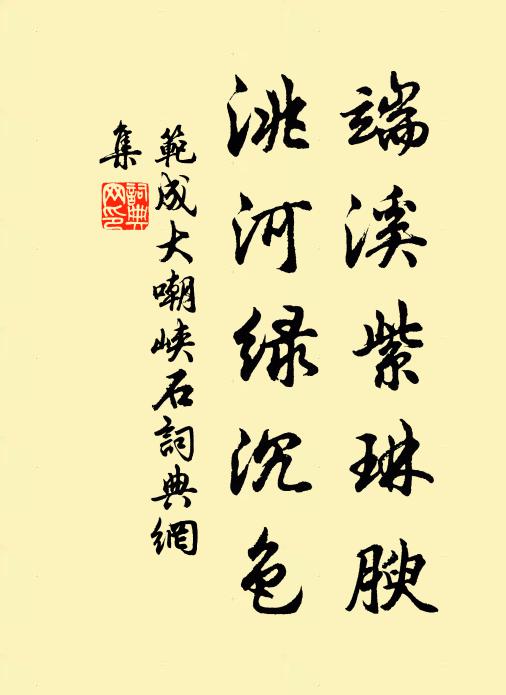 端溪紫琳腴
洮河绿沉色
範成大嘲峡石詞典網
集
詞典網印